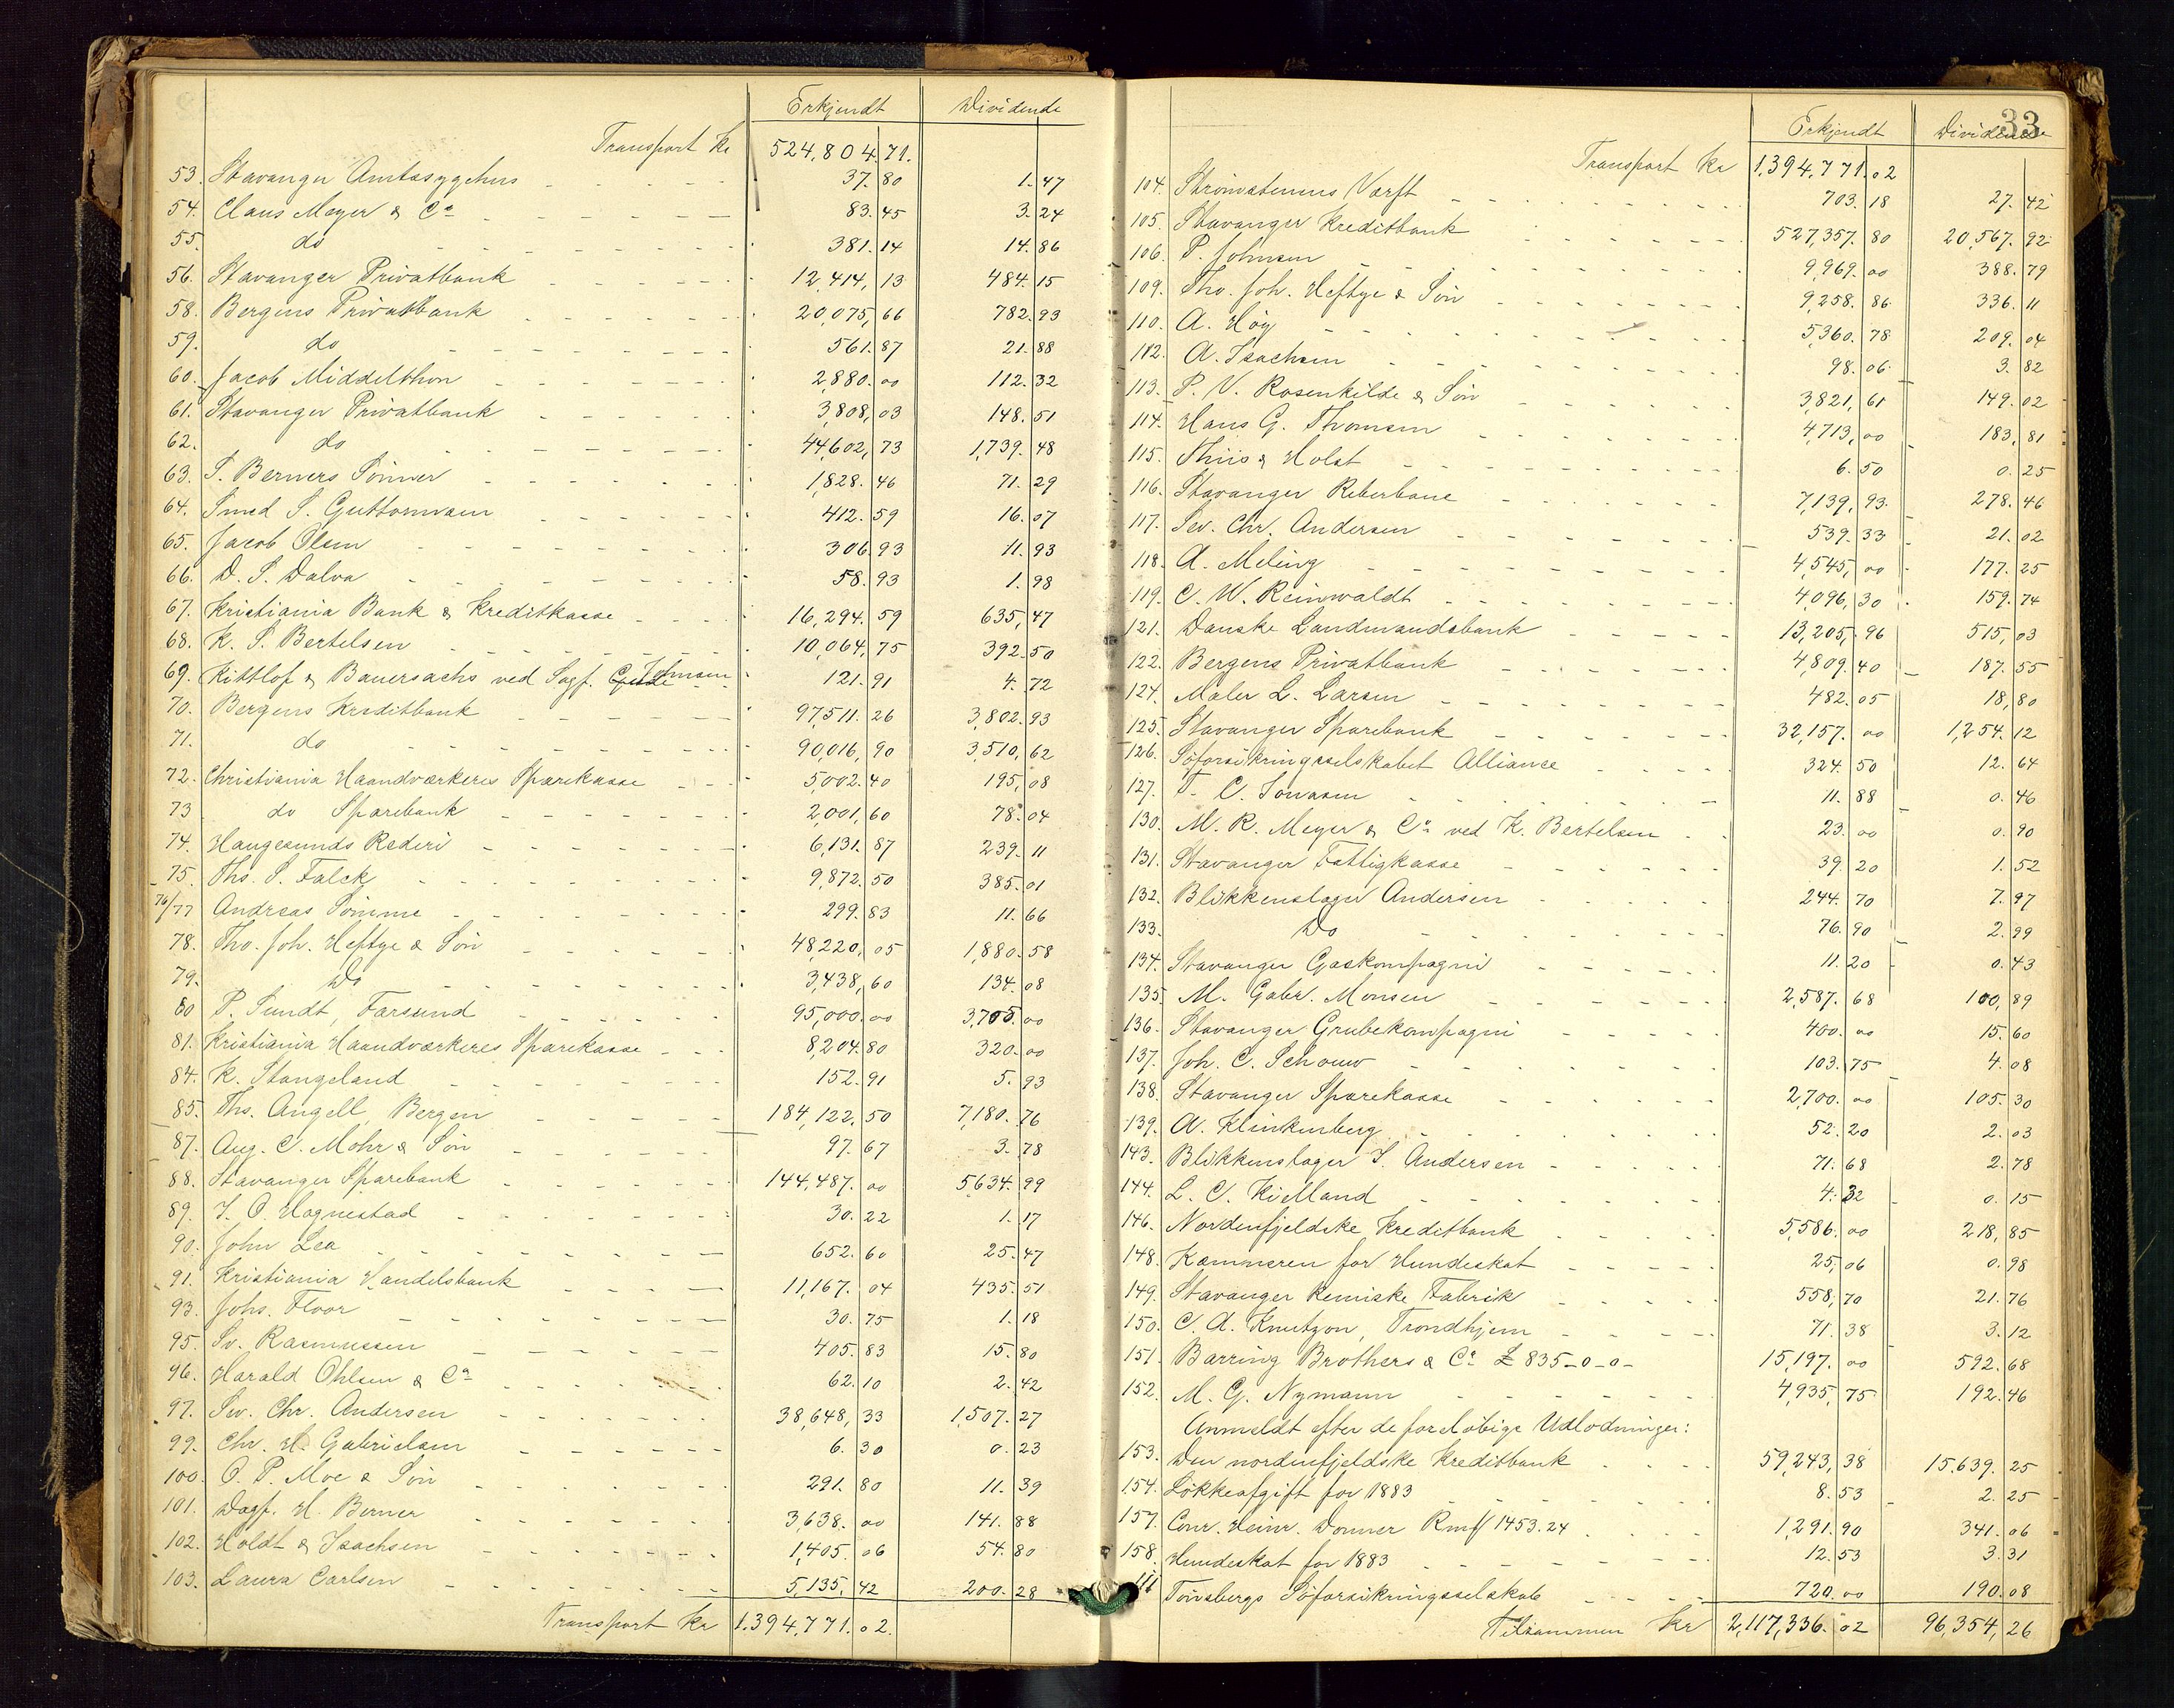 Erkjendt Dividende
Transport Kr 524,804.71.
53. Stavanger Amtssygehus 37.80 1.47
54. Claus Meyer & Co 83.45 3.24
55. do 381.14 14.86
56. Stavanger Privatbank 12,414,13 484.15
58. Bergens Privatbank 20,075,66 782.93
59. do 561.87 21.88
60. Jacob Middelthon 2,880.00 112.32
61. Stavanger Privatbank 3,808,03 148.51
62. do 44,602,73 1,739.48
63. S. Berners Sönner 1,828.46 71.29
64. Smed S. Guttormsen 412.59 16.07
65. Jacob Olsen 306.93 11.93
66. D. S. Dalva 58.93 1.98
67. Kristiania Bank & Kreditkasse 16,294.59 635,47
68. K. S. Bertelsen 10,064,75 392.50
69. Kittlof & Bauersachs ved Sagf. Johnsen 121.91 4.72
70. Bergens Kreditbank 97,511.26 3,802.93
71. do 90,016,90 3,510,62
72. Christiania Haandværkeres Sparekasse 5,002.40 195,08
73 do Sparebank 2,001,60 78.04
74. Haugesunds Rederi 6,131.87 239.11
75. Ths. S. Falck 9,872.50 385.01
76/77 Andreas Sömme 299.83 11.66
78. Tho. Joh. Heftye & Sön 48,220,05 1,880.58
79. Do 3,438,60 134.08
80 P. Sundt, Farsund 95,000.00 3,705.00
81. Kristiania Haandværkeres Sparekasse 8,204.80 320.00
84. K. Stangeland 152.91 5.93
85. Ths. Angell, Bergen 184,122.50 7,180.76
87. Aug. C. Mohr & Sön 97.67 3.78
88. Stavanger Sparebank 144,487.00 5,634.99
89. J. O. Hognestad 30.22 1.17
90. John Lea 652.60 25.47
91. Kristiania Handelsbank 11,167.04 435.51
93. Johs. Floor 30.75 1.18
95. Sv. Rasmussen 405.83 15.80
96. Harald Ohlsen & Co 62.10 2.42
97. Sev. Chr. Andersen 38,648,33 1,507.27
99. Chr. H. Gabrielsen 6.30 0.23
100. O. P. Moe & Sön 291.80 11.39
101. Dagf. H. Berner 3,638.00 141.88
102. Holdt & Isachsen 1,405.06 54.80
103. Laura Carlsen 5,135,42 200.28
Transport Kr 1.394,771.02.
33
Erkjendt Dividende
Transport Kr 1,394,771.02
104. Strömstenens Værft 703.18 27.42
105. Stavanger Kreditbank 527,357.80 20,567.92
106. P. Johnsen 9,969.00 388.79
109. Tho. Joh. Heftye & Sön 9,258.86 336.11
110. A. Höy 5,360.78 209.04
112. A. Isachsen 98.06 3.82
113. P. V. Rosenkilde & Sön 3,821,61 149.02
114. Hans G. Thomsen 4,713,00 183,81
115. Thiis & Holst 6.50 0.25
116. Stavanger Reberbane 7,139,93. 278.46
117. Sev. Chr. Andersen 539.33 21.02
118. A. Meling 4,545,00 177.25
119. C. W. Reinwaldt 4,096,30 159.74
121. Danske Landmandsbank 13,205,96 515,03
122. Bergens Privatbank 4,809.40 187.55
124. Maler L. Larsen 482.05 18,80
125. Stavanger Sparebank 32,157.00 1,254.12
126. Söforsikringsselskabet Alliance 324.50 12.64
127. T. C. Jonasen 11.88 0.46
130. M. R. Meyer & Co ved K. Bertelsen 23.00 0.90
131. Stavanger Fattigkasse 39.20 1.52
132. Blikkenslager Andersen 244.70 7.97
133. Do 76.90 2.99
134. Stavanger Gaskompagni 11.20 0.43
135. M. Gabr. Monsen 2,587.68 100,89
136. Stavanger Grubekompagni 400.00 15.60
137. Joh. C. Schouw 103.75 4.08
138. Stavanger Sparekasse 2,700.00 105.30
139. A. Klinkenberg 52.20 2.03
143. Blikkenslager S. Andersen 71.68 2.78
144. L. C. Kielland 4.32 0.15
146. Nordenfjeldske Kreditbank 5,586.00 218,85
148. Kæmneren for Hundeskat 25,06 0.98
149. Stavanger Kemiske Fabrik 558,70 21.76
150. C. A. Knutzon, Trondhjem 71.38 3.12
151. Barring Brothers & Co £ 835-0-0- 15,197.00 592.68
152. M. G. Nymann 4,935,75 192.46
Anmeldt efter de forelöbige Udlodninger:
153. Den nordenfjeldske Kreditbank 59,243,38 15.639.25
154. Lökkeafgift for 1883 8.53 2.25
157. Conr. Heinr. Donner Rmk 1453.24 1,291.90 341.06
158. Hundeskat for 1883 12.53 3.31
111 Tönsbergs Söforsikringsselskab 720.00 190.08
Tilsammen Kr 2,117,336.02 96,354,26